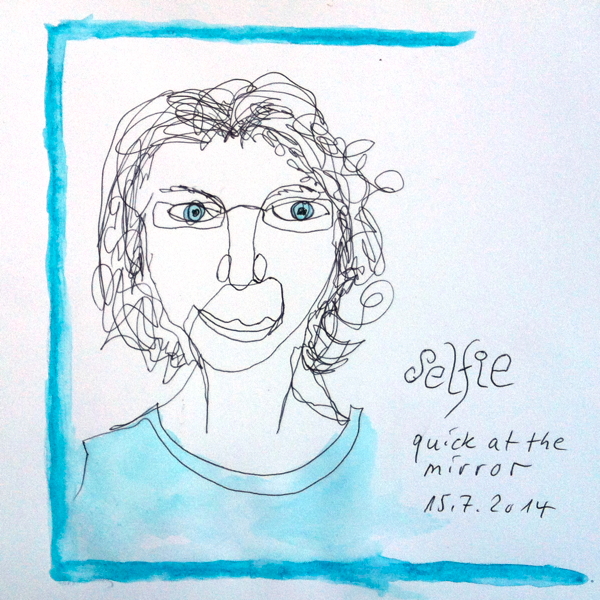 selfie
quick at the
mirror
15.7.2014